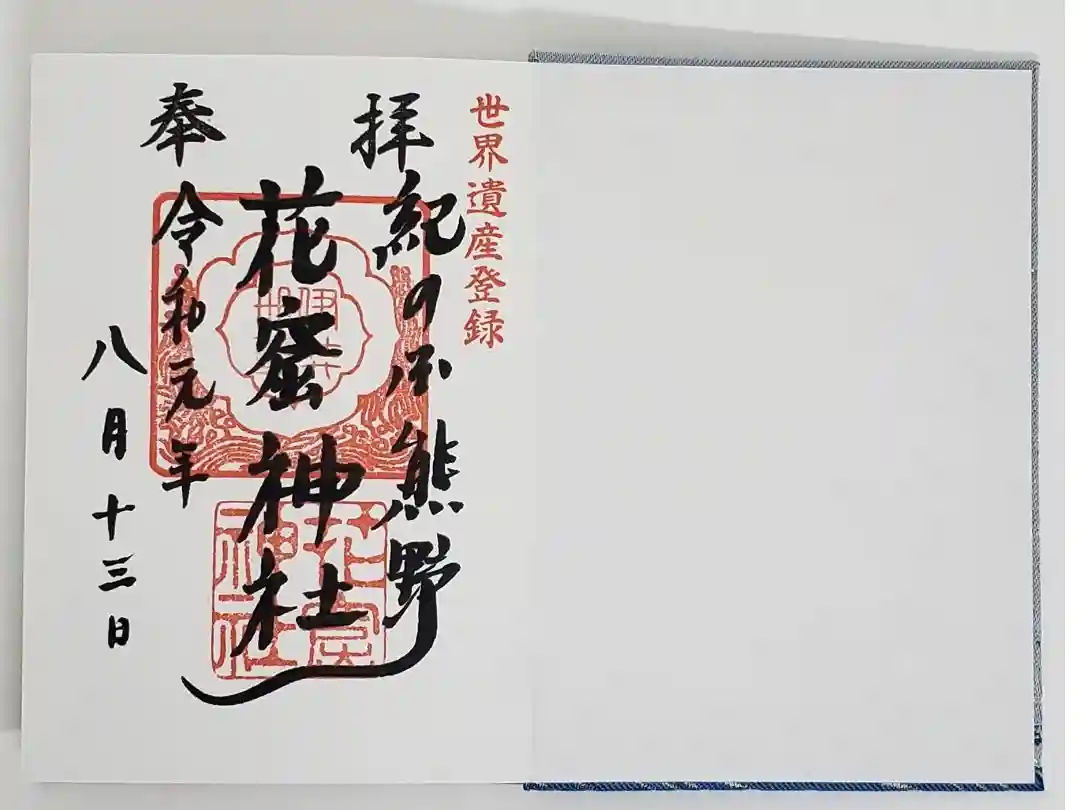 世界遺産登録
拝
紀の不熊野
花蜜神社
奉
令和元年
八月十三日